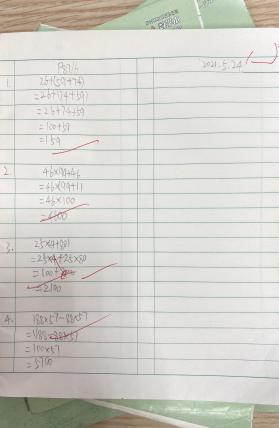 P87/6
2021.5.24
1. 26+(59+74)
=26+(74+59)
=26+74+59
=100+59
=159
2. 46×99+46
=46×(99+1)
=46×100
=4600
3. 25×(4+80)
=25×4+25×80
=100+
=2100
4. 188×57-88×57
=100×57
=5700